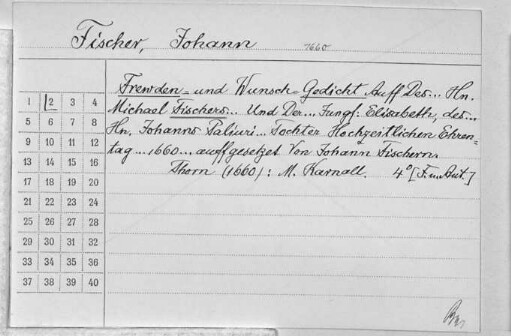 Fischer, Johann 1660
Frewden- und Wunsch-Gedicht Auff Des... Hn.
Michael Fischers... Und Der... Jungf: Elisabeth, des...
Hn. Johanns Paliuri... Tochter Hochzeitlichen Ehren-
tag... 1660... auffgesetzet Von Johann Fischern.
Thorn (1660): M. Karnall. 4° [F. u. Aut.]
1 2 3 4
5 6 7 8
9 10 11 12
13 14 15 16
17 18 19 20
21 22 23 24
25 26 27 28
29 30 31 32
33 34 35 36
37 38 39 40